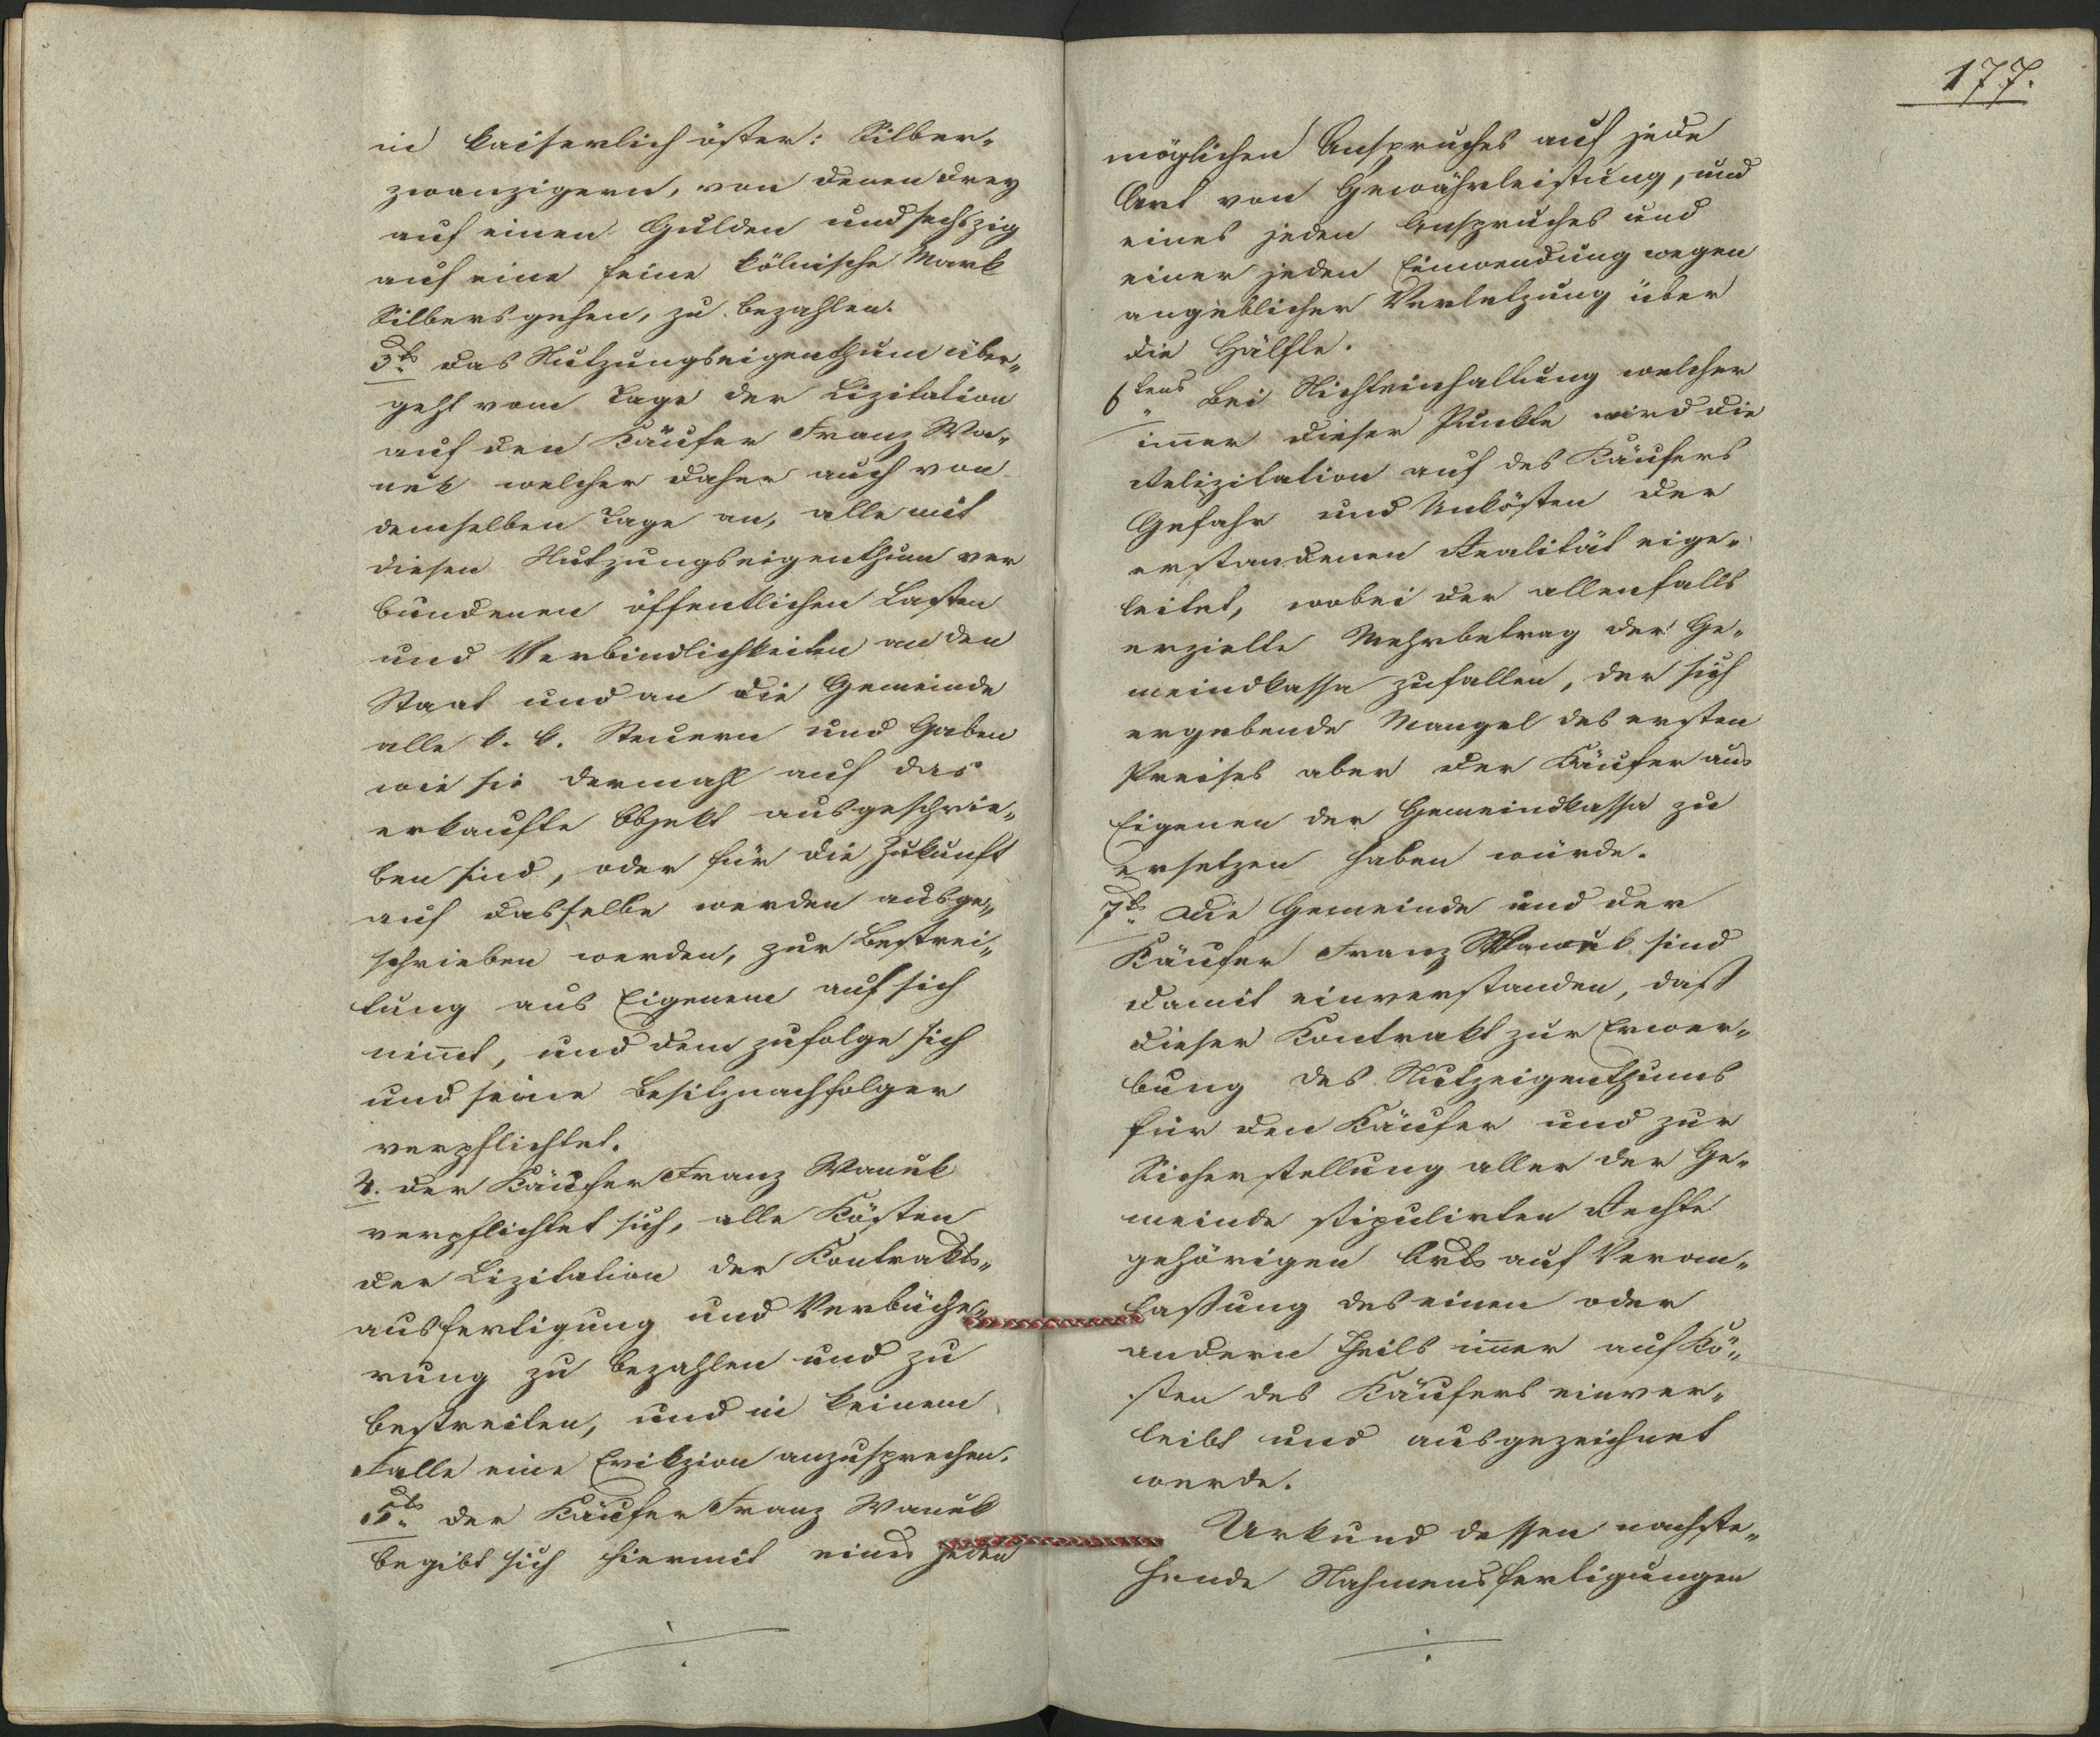 in kaiserlich öster: Silber„
zwanzigern, von denen drey
auf einen Gulden und sechszig
auf eine feine kölnische Mark
Silbers gehen, zu bezahlen.
3ts das Nutzungseigenthum über„
geht vom Tage der Lizitation
auf den Käufer Franz Wa„
nek welcher daher auch von
demselben Tage an, alle mit
diesen Nutzungseigenthum ver
bundenen öffentlichen Lasten
und Verbindlichkeiten an den
Staat und an die Gemeinde
alle k. k. Steuern und Gaben
wie sie dermahl auf das
erkaufte Objekt ausgeschrie„
ben sind, oder für die Zukunft
auf dasselbe werden ausge„
schrieben werden, zur Bestrei„
tung aus Eigenem auf sich
nim̄t, und dem zufolge sich
und seine Besitznachfolger
verpflichtet.
4. der Käufer Franz Wanek
verpflichtet sich, alle Kösten
der Lizitation der Kontrakts„
ausfertigung und Verbüche„
rung zu bezahlen und zu
bestreiten, und in keinem
Falle eine Evikzion anzusprechen.
5ts der Käufer Franz Wanek
begibt sich hiermit eines jeden
177.
möglichen Anspruches auf jede
Art von Gewährleistung, und
eines jeden Anspruches und
einer jeden Einwendung wegen
angeblicher Verletzung über
die Hälfte.
6tens Bei Nichteinhaltung welcher
im̄er dieser Punkte wird die
Relizitation auf des Käufers
Gefahr und Unkösten der
erstandenen Realität eige„
leitet, wobei der allenfalls
erzielte Mehrbetrag der Ge„
meindkassa zufallen, der sich
ergebende Mangel des ersten
Preises aber der Käufer aus
Eigenen der Gemeindkassa zu
ersetzen haben würde.
7ts Die Gemeinde und der
Käufer Franz Wanek sind
damit einverstanden, daß
dieser Kontrakt zur Erwer„
bung des Nutzeigenthums
für den Käufer und zur
Sicherstellung aller der Ge„
meinde stipulirten Rechte
gehörigen Orts auf Veran„
laßung des einen oder
andern Theils im̄er auf Kö„
sten des Käufers einver„
leibt und ausgezeichnet
werde.
Urkund dessen nachste„
hende Nahmensfertigungen